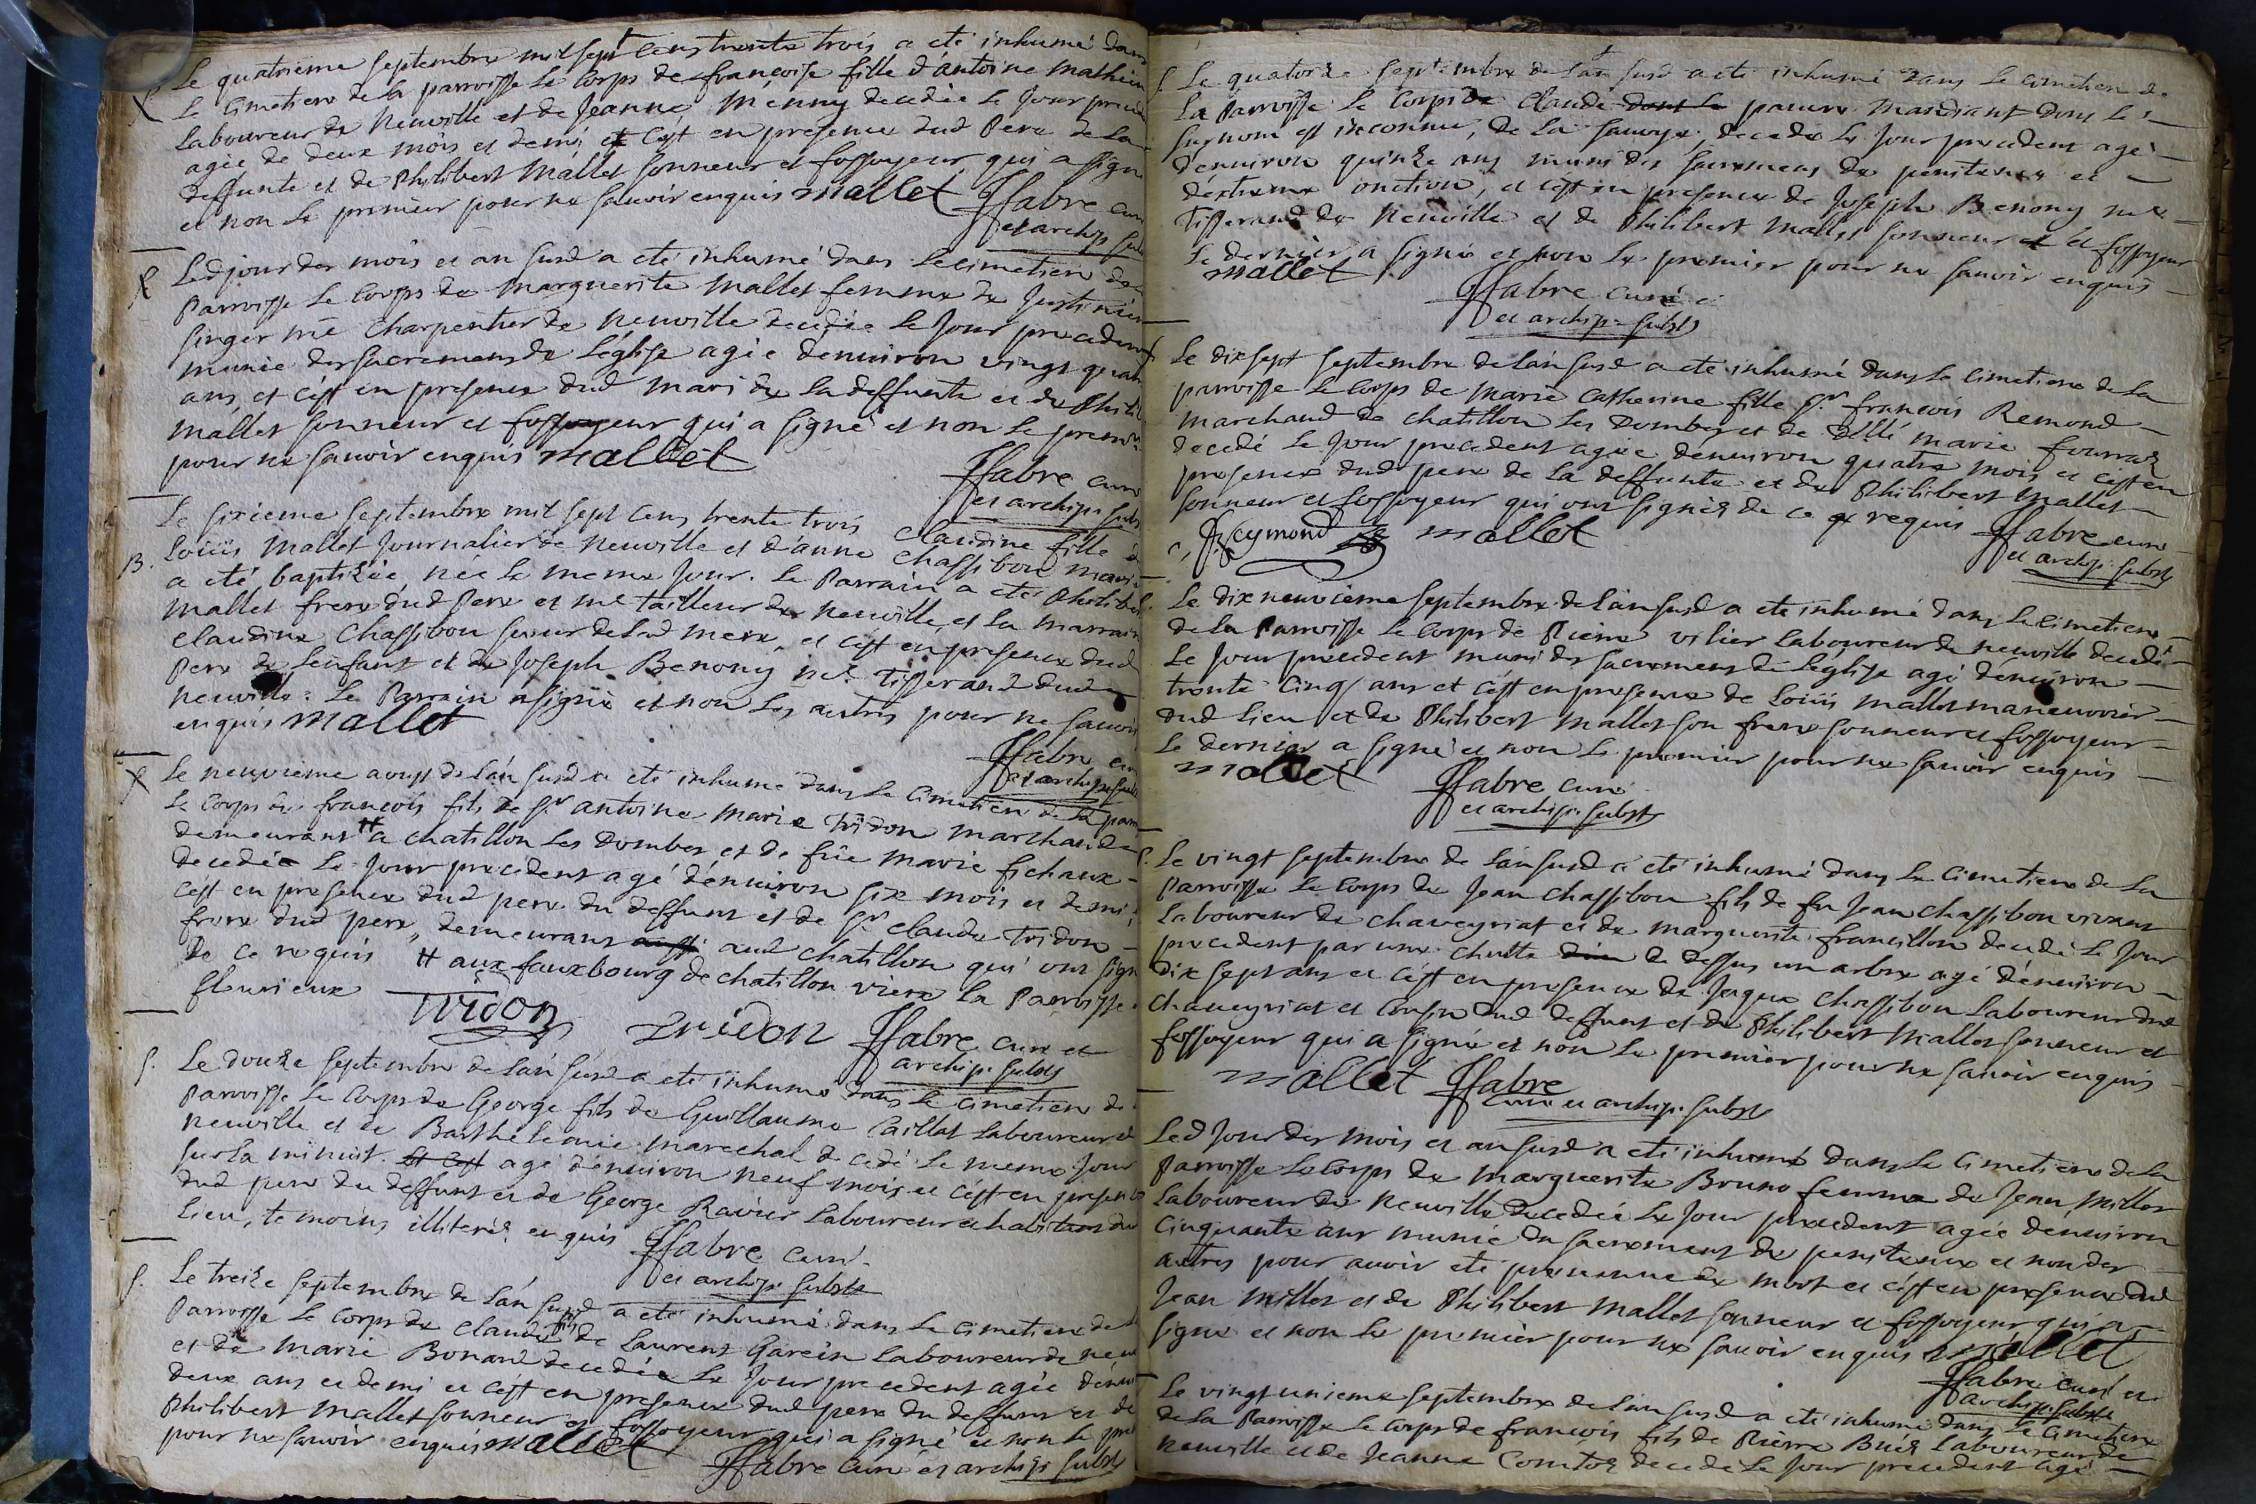 Le quatrieme septembre mil sept cens trente trois a eté inhumé dans
le Cimetiere de la parroisse le corps de francoise fille d'antoine mathieu
laboureur de Neuville et de Jeanne Menny decedée le jour preced
agée de deux mois et demi et c'est en presence dud pere de la
deffunte et de Philibert Mallet sonneur et fossoyeur qui a signe
et non le premier pour ne sauoir enquis Mallet Ffabre curé
et archip. subst
Led jour des mois et an susd a eté inhumé dans le cimetiere de
Parroisse le corps de Marguerite Mallet femme de
singer me Charpentier de Neuville decedée le jour precedent
munie des sacremens de l'église agée d'enuiron vingt quatr
ans, et c'est en presence dud mari de la deffunte et de Phili
Mallet sonneur et fossoyeur qui a signé et non le premier
pour ne sauoir enquis Mallet
Ffabre curé
et archip. subst
Le sixieme septembre mil sept cens trente trois Claudine fille de
B. Loüis Mallet Journalier de Neuville et d'anne Chassibou mari
a eté baptisée, née le meme jour. Le Parrain a eté Philibe
Mallet frere dud Pere et me tailleur de Neuville, et la marrain
Claudine Chassibou soeur de lad mere, et c'est en presence dud
Pere de l'enfant et de Joseph Benony me Tisserand dud
Neuville. Le Parrain a signé et non les autres pour ne sauoir
enquis Mallet
Ffabre cu
et archip. subst
Le neuvieme aoust de l'an susd a eté inhumé dans le cimetiere de la parr
le corps de francois fils de Sr antoine Marie Tridon marchand
demeurant # a chatillon les Dombes et de füe Marie fichaux
decedée le jour precedent agé d'enuiron six mois et demi
c'est en presence dud pere du deffunt et de Sr Claude Tridon
frere dud pere, demeurant aud chatillon qui ont sign
de ce requis # aux fauxbourg de chatillon vieux la Parroisse
fleurieux
Tridon Tridon Ffabre curé et
archip. subst
S. Le douze septembre de l'an susd a eté inhumé dans le cimetiere de
Parroisse le corps de George fils de Guillaume Caillat laboureur de
Neuville et de Barthelemie Marechal decedé le meme jour
sur la minuit. et c'est agé d'enuiron neuf mois et c'est en presence
dud pere du deffunt et de George Ravier laboureur et habitant dud
Lieu, temoins illiterés enquis Ffabre curé
et archip. subst
S. Le treize septembre de l'an susd a eté inhumé dans le cimetiere de
Parroisse le corps de Claude fils de Laurent Garein laboureur de neu
et de Marie Bonard decedée le jour precedent agée d'enui
deux ans et demi et c'est en presence dud pere du deffunt et de
Philibert Mallet sonneur et fossoyeur qui a signé et non le pre
pour ne sauoir enquis Mallet
Ffabre curé et archip. subst
S. Le quatorze septembre de l'an susd a eté inhumé dans le cimetiere de
la Parroisse le corps de Claude dont le pauure mandiant dont le
surnom est inconnu, de la Sauoye, decedé le jour precedent agé
d'enuiron quinze ans muni des sacremens de penitence et
d'extreme onction, et c'est en presence de Joseph Benony me
Tisserand de Neuville et de Philibert Mallet sonneur et fossoyeur
le dernier a signé et non le premier pour ne sauoir enquis
Mallet
Ffabre curé
et archip. subst
Le dix sept septembre de l'an susd a eté inhumé dans le cimetiere de la
parroisse le corps de Marie Catherine fille Sr francois Remond
marchand de chatillon les Dombes et de Delle Marie fourraz
decedé le jour precedent agée d'enuiron quatre mois et c'est en
presence dud pere de la deffunte et de Philibert Mallet
sonneur et fossoyeur qui ont signés de ce requis Ffabre curé
et archip. subst
Reymond Mallet
Le dix neuvieme septembre de l'an susd a eté inhumé dans le cimetiere
de la Parroisse le corps de Pierre vilier laboureur de neuville decedé
le jour precedent muni des sacremens de l'eglise agé d'enuiron
trente cinq ans et c'est en presence de Loüis Mallet maneuvrier
dud lieu et de Philibert Mallet son frere sonneur et fossoyeur
le dernier a signé et non le premier pour ne sauoir enquis
Mallet Ffabre curé
et archip. subst
S. Le vingt septembre de l'an susd a eté inhumé dans le cimetiere de la
Parroisse le corps de Jean Chassibou fils de fu Jean Chassibou vivant
laboureur de chaveyriat et de Marguerite francillon decedé le jour
precedent par une chutte de dessus un arbre agé d'enuiron
dix sept ans et c'est en presence de Jaque Chassibou laboureur dud
Chaveyriat et cousin dud deffunt et de Philibert Mallet sonneur et
fossoyeur qui a signé et non le premier pour ne sauoir enquis
Mallet Ffabre
curé et archip. subst
Led jour des mois et an susd a eté inhumé dans le cimetiere de la
Parroisse le corps de Marguerite Bruno femme de Jean Millet
laboureur de Neuville decedée le jour precedent agée d'enuiron
cinquante ans munie du sacrement de penitence et non des
autres pour auoir eté preuenue de mort et c'est en presence dud
Jean Millet et de Philibert Mallet sonneur et fossoyeur qui a
signe et non le premier pour ne sauoir enquis Mallet
Ffabre curé et
archip. subst
Le vingt unieme septembre de l'an susd a eté inhumé dans le cimetiere
de la Parroisse le corps de francois fils de Pierre laboureur de
Neuville et de Jeanne decedé le jour precedent agé